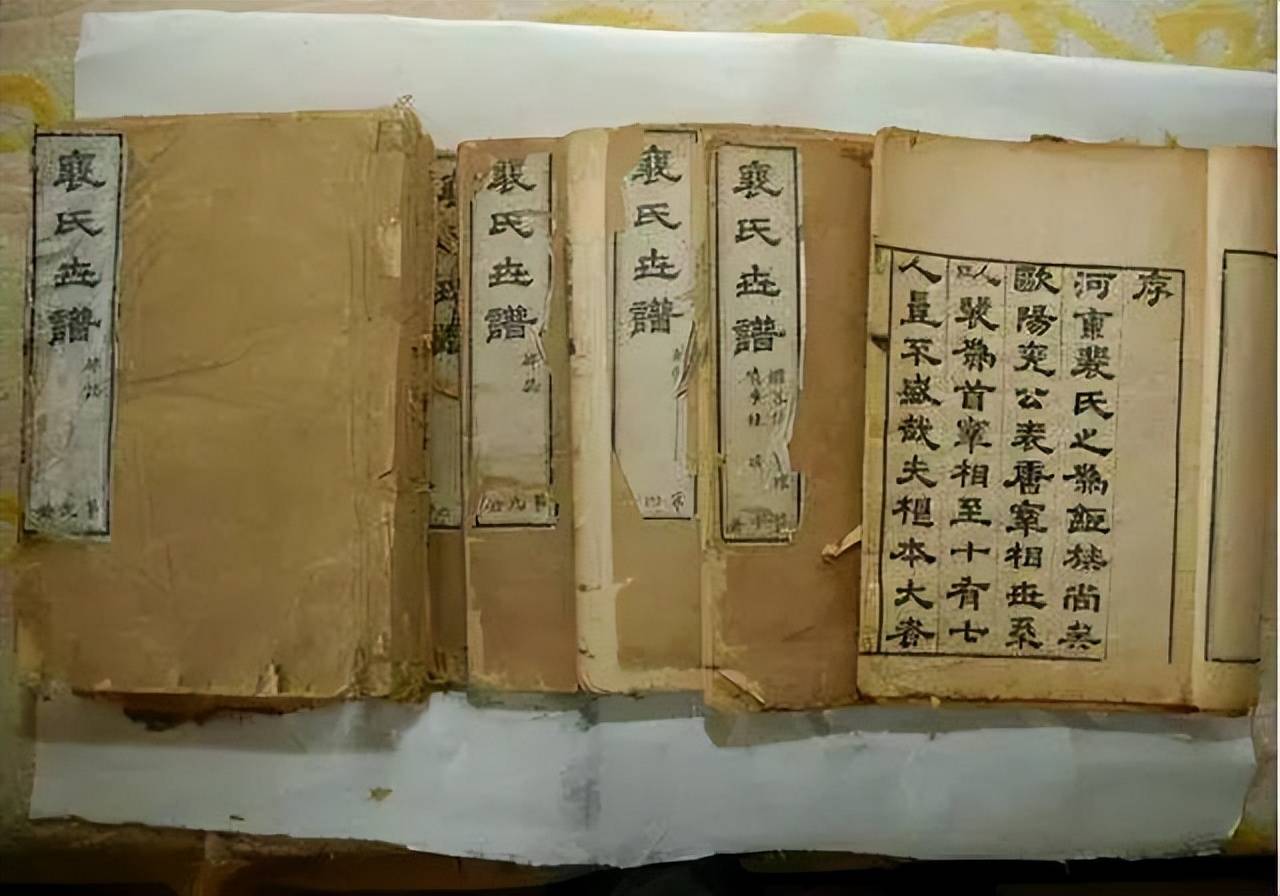 序
河東裵氏之為鉅族尚矣
歐陽兗公表唐宰相世系
以裵為首宰相至十有七
人豈不盛哉夫本大者
裵氏世譜
裵氏世譜
裵氏世譜
裵氏世譜